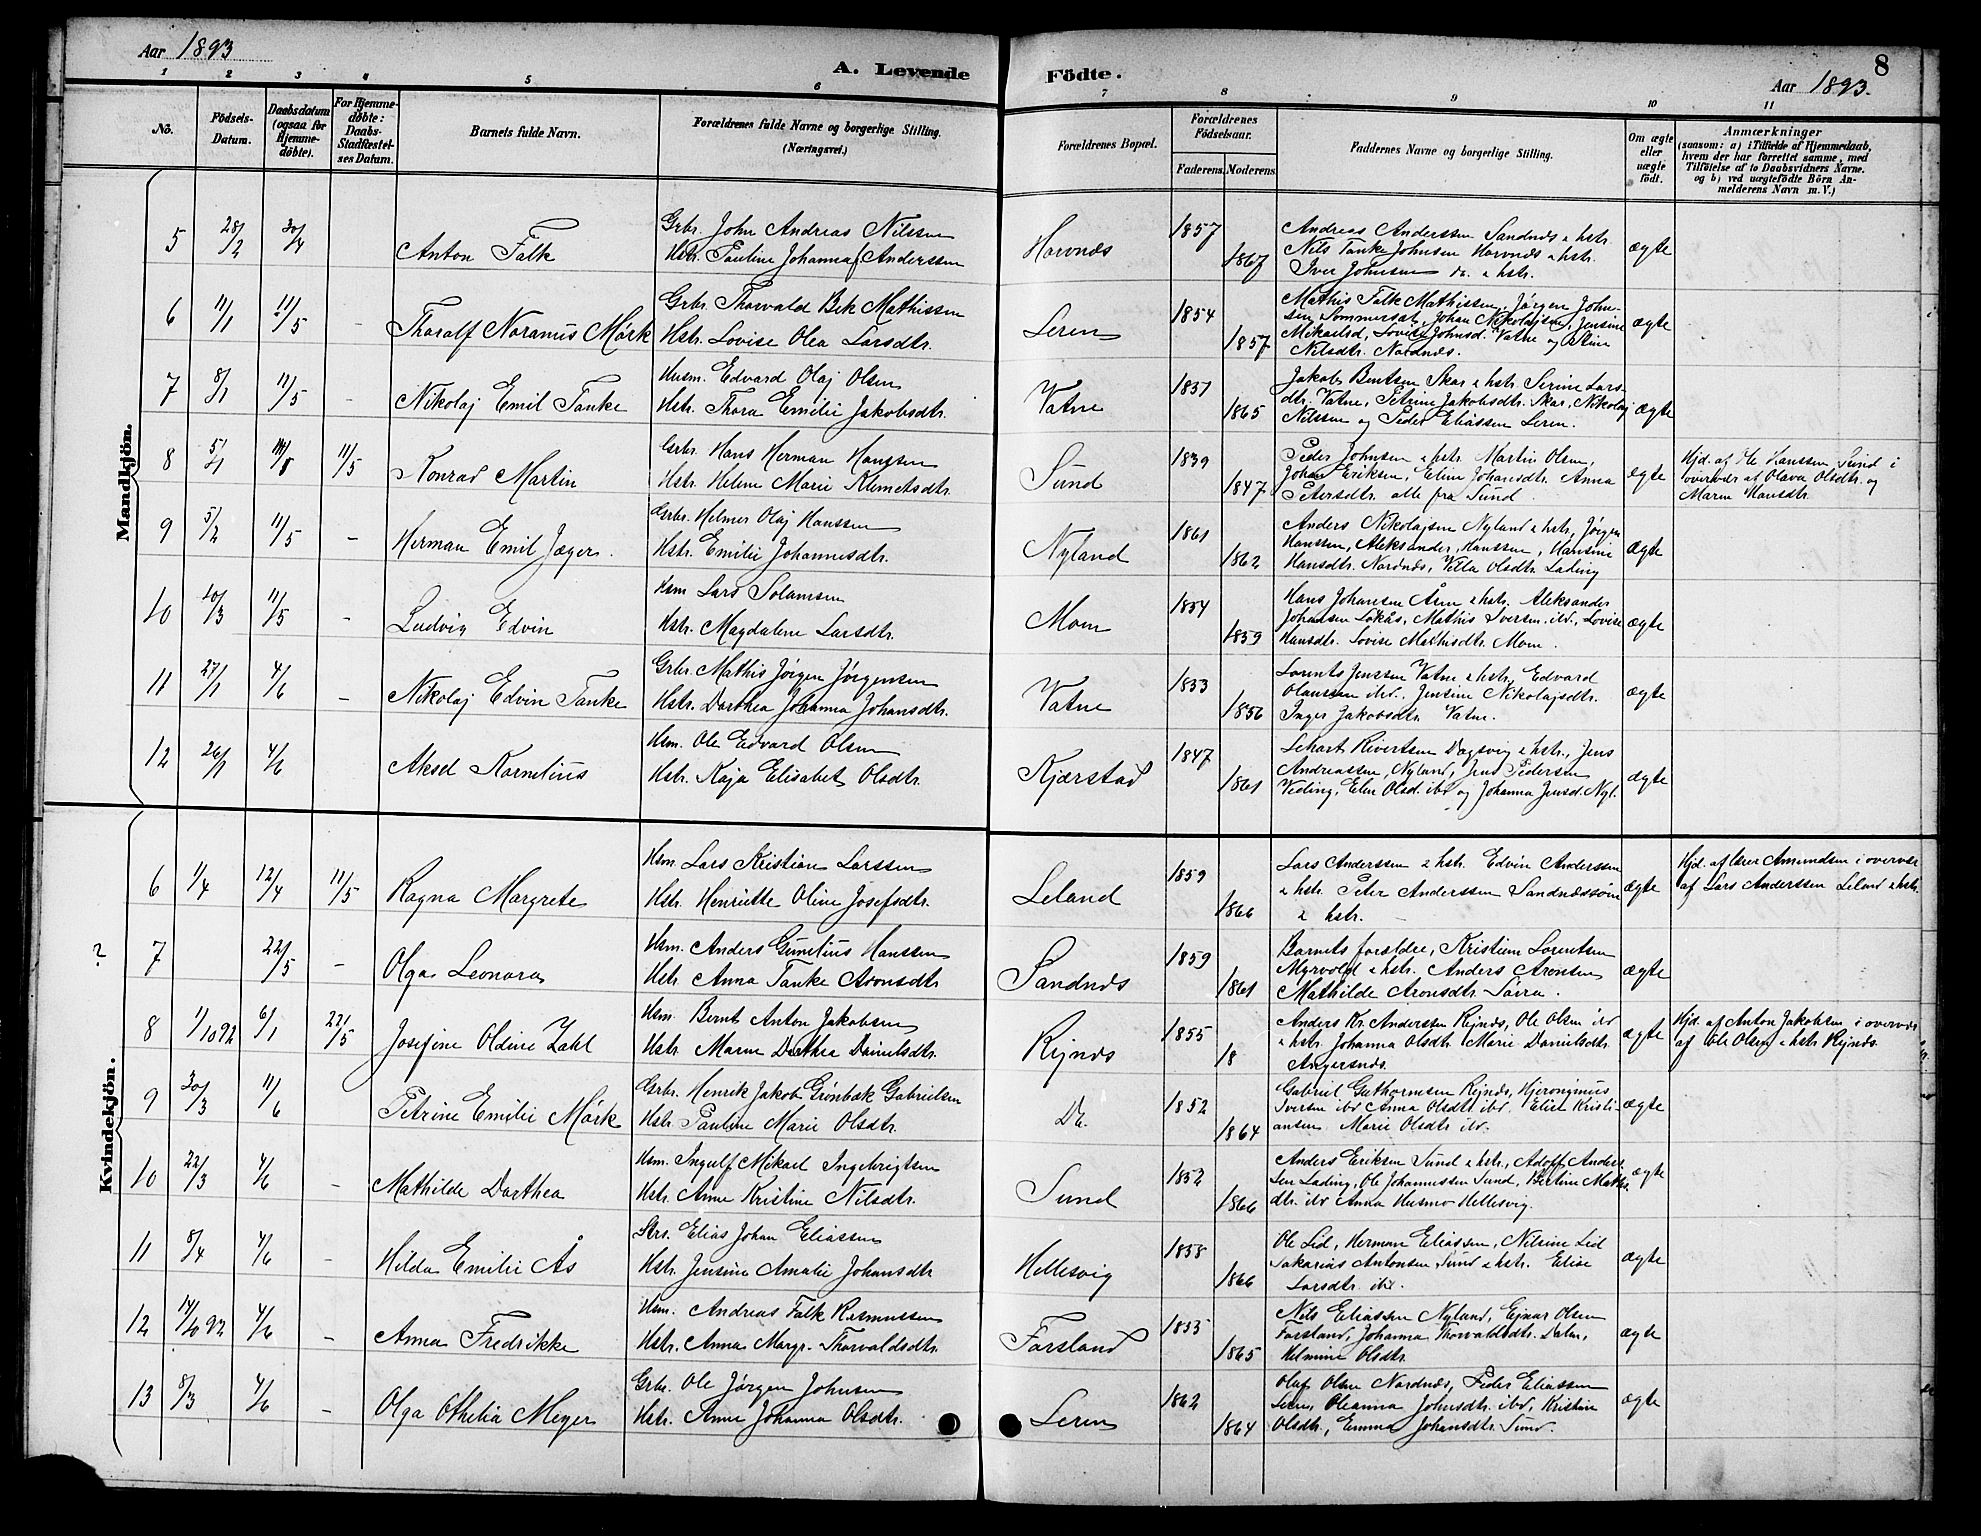 Aar 1893
A. Levende Födte.
8
Aar 1893.
1 2 3 4 5 6 7 8 9 10 11
No.
Födsels-
Datum.
Daabsdatum
(ogsaa for
Hjemme-
döbte).
For Hjemme-
döbte:
Daabs-
Stadfæstel-
ses Datum.
Barnets fulde Navn.
Forældrenes fulde Navne og borgerlige Stilling.
(Næringsvei.)
Forældrenes Bopæl.
Forældrenes
Födselsaar.
Faderens. Moderens.
Faddernes Navne og borgerlige Stilling.
Om ægte
eller
uægte
födt.
Anmærkninger
(saasom: a) i Tilfælde af Hjemmedaab,
hvem der har forrettet samme, med
Tilföielse af to Daabsvidners Navne.
og b) ved uægtefödte Börn An-
melderens Navn m. V.)
Mandkjön.
5 28/2 30/4 Anton Falk
Grbr. John Andreas Nilssen
Hstr. Pauline Johanna Anderssen
Horvnæs 1857 1867
Andreas Anderssen Sandnæs & hstr.
Nils Tanke Johnsen Horvnæs & hstr.
Iver Johnsen do. & hstr.
ægte
6 11/1 11/5 - Thoralf Noranus Mørk
Grbr. Thorvald Bek Mathissen
Hstr. Lovise Olea Larsdtr.
Leren 1854 1857
Mathis Falk Mathissen, Jørgen John-
sen Sommersæt, Johan Nikolajsen, Jensine
Mikaelsd, Lovise Johnsd. Vatne og Stine
Nilsdtr. Nordnæs.
ægte
7 8/1 11/5 - Nikolaj Emil Tanke
Husm. Edvard Olaj Olsen
Hstr. Thora Emilie Jakobsdtr.
Vatne 1837 1865
Jakob Bentsen Skar & hstr. Serine Lars-
dtr. Vatne, Petrine Jakobsdtr. Skar, Nikolaj
Nilssen og Peder Eliassen Leren.
ægte
8 5/1 11/5 Konrad Martin
Grbr. Hans Herman Hanssen
Hstr. Helene Marie Klemetsdtr.
Sund 1839 1847
Peder Johnsen & hstr. Martin Olsen,
Johan Eriksen, Eline Johansdtr. Anna
Petersdtr. alle fra Sund.
ægte
Hjd. af Ole Hanssen Sund i
overvær af Olava Olsdtr. og
Maren Hansdtr.
9 5/2 11/5 - Herman Emil Jæger.
Grbr. Helmer Olaj Hanssen
Hstr. Emilie Johannesdtr.
Nyland 1861 1862
Anders Nikolajsen Nyland & hstr, Jørgen
Hanssen, Aleksander Hanssen, Hansine
Hansdtr. Nordnæs, Olsdtr. Lading
ægte
10 10/3 11/5 - Ludvig Edvin
Hsm Lars Solamsen
Hstr. Magdalene Larsdtr.
Moen 1854 1859
Hans Johansen Åsen & hstr. Aleksander
Johansen Løkås, Mathis Iversen ibd., Lovise
Hansdtr. Lovise Mathisdtr. Moen.
ægte
11 27/1 4/6 - Nikolaj Edvin Tanke
Grbr. Mathis Jørgen Jørgensen
Hstr. Darthea Johanna Johansdtr.
Vatne 1833 1856
Lorents Jenssen Vatne & hstr, Edvard
Olaussen ibd., Jensine Nikolajsdtr.
Inger Jakobsdtr. Vatne.
ægte
12 26/1 4/6 Aksel Kornelius
Hsm. Ole Edvard Olsen
Hstr. Kaja Elisabet Olsdtr.
Kjærstad 1847 1861
Sivertsen Dagsvig & hstr., Jens
Andreassen, Nyland, Jens Pedersen
Veding, Elen Olsd. ibd og Johanna Jensd. Nyl.
ægte
Kvindekjön.
6 1/4 12/4 11/5 Ragna Margrete
Hsm. Lars Kristian Larssen
Hstr. Henriette Oline Josefsdtr.
Leland 1859 1866
Lars Anderssen & hstr. Edvin Anderssen
& hstr. Peter Anderssen Sandnæssøen
& hstr.
ægte
Hjd. af lærer Amundsen i overvær
af Lars Anderssen Leland & hstr.
? 7 22/5 - Olga Leonora
Hsm. Anders Gunelius Hanssen
Hstr. Anna Tanke Aronsdtr
Sandnæs 1859 1861
Barnets forældre, Kristian Lorentsen
Myrvold & hstr. Anders Aronsen
Mathilde Aronsdtr. Sørra.
ægte
8 1/10 92 6/1 22/5 Josefine Oldine Zahl
Hsm. Bernt Anton Jakobsen
Hstr. Maren Darthea Danielsdtr.
Rejnæs 1855 18
Anders Kr. Anderssen Rejnæs, Ole Olsen ibd
& hstr. Johanna Olsdtr. Marie Danielsdtr.
Angersnæs.
ægte
Hjd. af Anton Jakobsen i overvær
af Ole Olsen & hstr. Rejnæs.
9 30/3 11/6 Petrine Emilie Mørk
Grbr. Henrik Jakob Grønbæk Gabrielsen
Hstr. Pauline Marie Olsdtr.
Do. 1852 1864
Gabriel Guthormsen Rejnæs, Hjeronymus
Iversen ibd Anna Olsdtr ibd. Elise Kristi-
ansen Marie Olsdtr ibd.
ægte
10 22/3 4/6 - Mathilde Darthea
Hsm. Ingulf Mikael Ingebrigtsen
Hstr. Anne Kristine Nilsdtr.
Sund 1852 1866
Anders Eriksen Sund & hstr., Adolf Anders
sen Lading, Ole Johannessen Sund, Bertine Maths.
dtr. ibd Anna Husmo Hellesvig.
ægte
11 8/4 4/6 - Hilda Emilie Ås
Strs. Elias Johan Eliassen
Hstr. Jensine Amalie Johansdtr
Hellesvig 1858 1866
Ole Lid, Herman Eliassen, Nilsine Lid
Sakarius Antonsen Sund & hstr. Elise
Larsdtr. ibd.
ægte
12 92 4/6 - Anna Fredrikke
Hsm. Andreas Falk Rasmussen
Hstr. Anna Margr. Thorvaldsdtr.
Forsland 1855 1865
Nils Eliassen Nyland, Ejnar Olsen
Forsland, Johanna Thorvaldsdtr. Dalen,
Helmine Olsdtr.
ægte
13 8/3 4/6 - Olga Othelia Meyer
Grbr. Ole Jørgen Johnsen
Hstr. Anne Johanna Olsdtr.
Leren 1862 1864
Olaf Olsen Nordnæs, Peder Eliassen
Leren, Oleanna Johnsdtr. ibd, Kristine
Olsdtr., Emma Johansdtr. Sund.
ægte